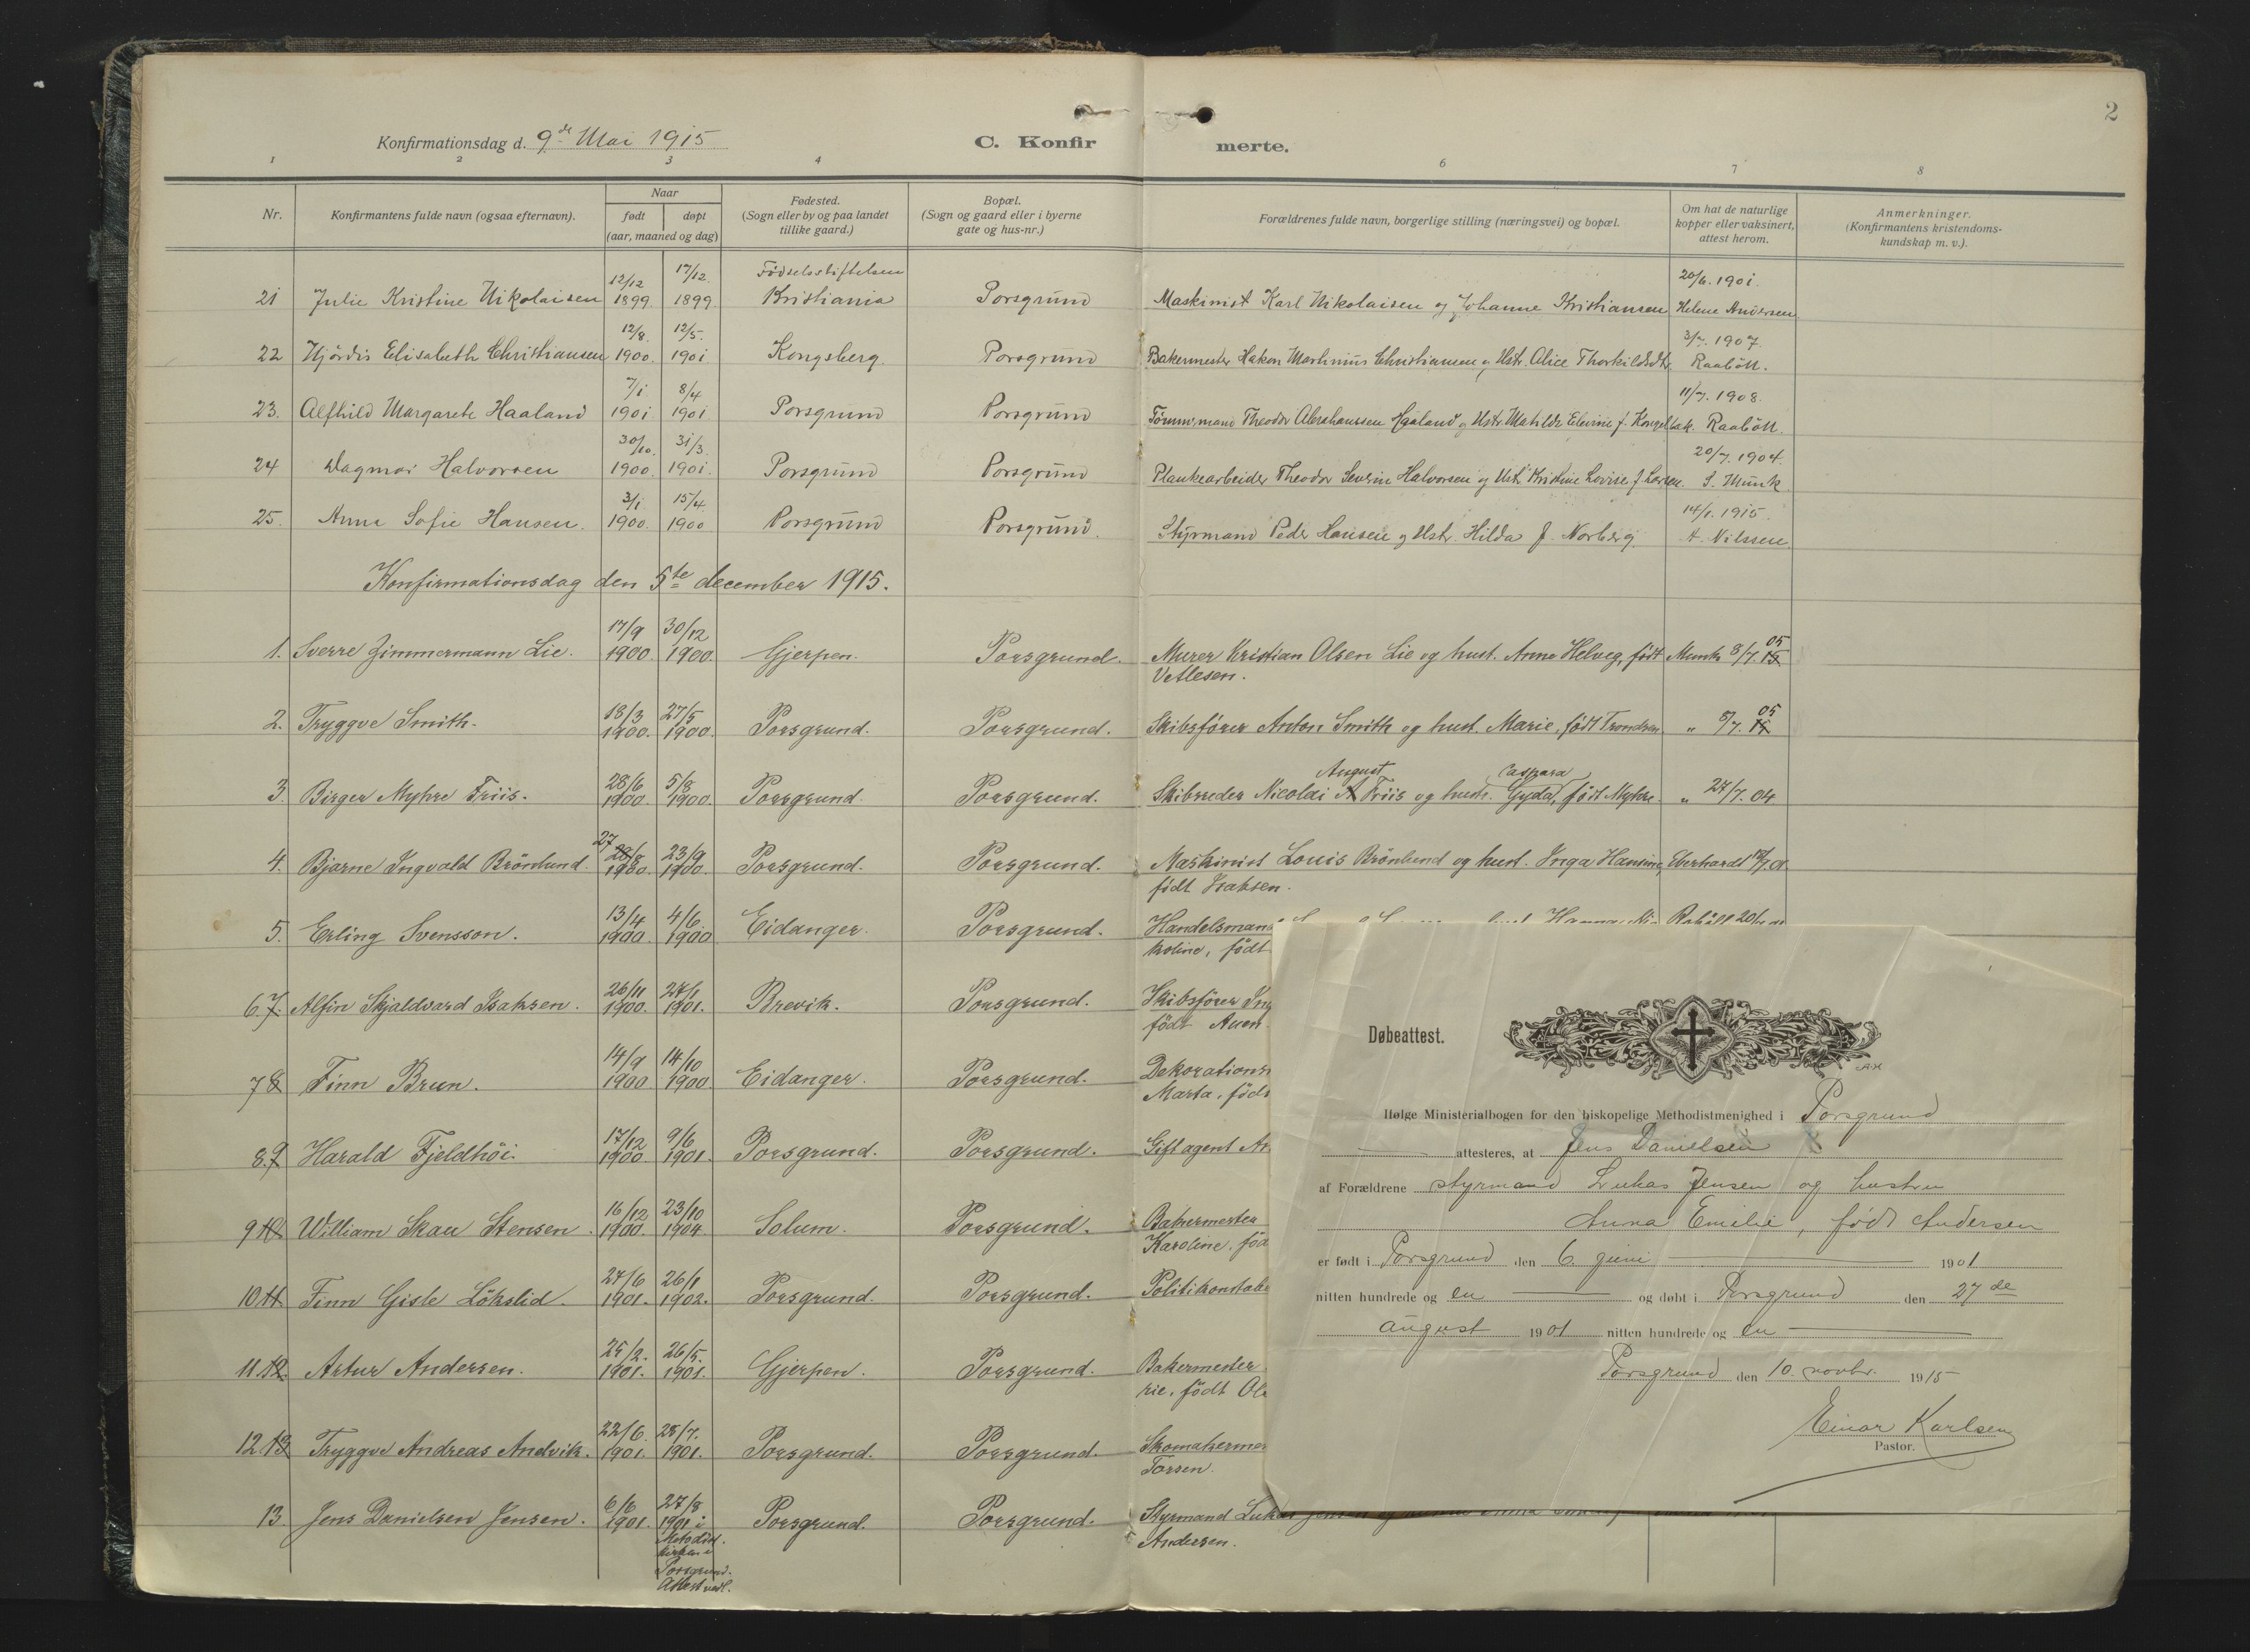 2
Konfirmationsdag d. 9de Mai 1915
C. Konfirmerte.
1 2 3 4 6 7 8
Nr.
Konfirmantens fulde navn (ogsaa efternavn).
Naar
født døpt
(aar, maaned og dag)
Fødested.
(Sogn eller by og paa landet
tillike gaard.)
Bopæl.
(Sogn og gaard eller i byerne
gate og hus-nr.)
Forældrenes fulde navn, borgerlige stilling (næringsvei) og bopæl.
Om hat de naturlige
kopper eller vaksinert,
attest herom.
Anmerkninger.
(Konfirmantens kristendoms-
kundskap m. v.).
12/12 17/12 Fødselsstiftelsen 20/6. 1901.
21 Julie Kristine Nikolaisen 1899 1899 Kristiania Porsgrund Maskinist Karl Nikolaisen og Johanne Kristiansen Helene Andersen
12/8. 12/5. 3/7. 1907.
22 Hjördis Elisabeth Christiansen 1900. 1901 Kongsberg. Porsgrund Bakermester Hakon Martinius Christiansen og Hstr. Alice Thorkildsdtr. Raaböll.
7/1 8/4 11/7. 1908.
23. Alfhild Margarete Haaland 1901 1901 Porsgrund Porsgrund Tömmermand Theodor Abrahamsen Haaland og Hstr. Matilde Elevine f. Raaböll.
30/10. 31/3. 20/7. 1904.
24 Dagmar Halvorsen 1900. 1901. Porsgrund Porsgrund Plankearbeider Theodor Severin Halvorsen og Hstr. Kristine Lovise f. Larsen. S. Munk
3/1 15/4. 14/1. 1915.
25. Anna Sofie Hansen. 1900. 1900 Porsgrund Porsgrund. Styrmand Peder Hansen og Hstr. Hilda f. Norberg. A. Nilssen.
Konfirmationsdag den 5te december 1915.
17/9 30/12 05
1. Sverre Zimmermann Lie. 1900. 1900. Gjerpen. Porsgrund. Murer Kristian Olsen Lie og hust. Anna Helveg, født Munk 8/7. 15
Vetlesen.
18/3 27/5 05
2. Tryggve Smith. 1900. 1900. Porsgrund. Porsgrund. Skibsfører Anton Smith og hust. Marie, født Trondsen. " 8/7. 15
28/6 5/8 August Caspara
3. Birger Myhre Friis. 1900. 1900. Porsgrund. Porsgrund. Skibsreder Nicolai A Friis og hustr. Gyda, født Myhre. " 27/7. 04
27 28/8 23/9
4. Bjarne Ingvald Brönlund. 1900. 1900. Porsgrund. Porsgrund. Maskinist Louis Brönlund og hust. Inga Hansine, Eberhardt
født Isaksen.
13/4 4/6
5. Erling Svensson. 1900. 1900 Eidanger. Porsgrund. Handelsmand
koline, født
26/11 27/1
6 7. Alfin Skjaldvard Isaksen. 1900. 1901. Brevik. Porsgrund. Skibsfører
født
14/9 14/10
7 8 Finn Brun. 1900 1900 Eidanger. Porsgrund. Dekorations
Marta, født
17/12 9/6
8. 9 Harald Fjeldhöi. 1900. 1901. Porsgrund. Porsgrund. Giftagent
16/12 23/10
9 10 William Skau Stensen. 1900. 1904. Solum. Porsgrund. Bakermester
Karoline, fød
27/6 26/1
10 11 Finn Gisle Lökslid. 1901. 1902. Porsgrund. Porsgrund. Politikonstabe
25/2. 26/5.
11 12. Artur Andersen. 1901. 1901. Gjerpen. Porsgrund. Bakermester
rie, født
22/6. 28/7.
12 13 Tryggve Andreas Andvik. 1901. 1901. Porsgrund. Porsgrund. Skomakerme
Torsen.
6/6 27/8
13. Jens Danielsen Jensen. 1901. 1901 i Porsgrund. Porsgrund. Styrmand Lukas Jensen
Metodist. Andersen.
kirken i
Porsgrund.
Attest vedl.
Døbeattest.
Ifølge Ministerialbogen for den biskopelige Methodistmenighed i Porsgrund
attesteres, at Jens Danielsen
af Forældrene styrmand Lukas Jensen og hustru
Anna Emilie, født Andersen
er født i Porsgrund den 6. juni 1901
nitten hundrede og en og døbt i Porsgrund den 27de
august 1901 nitten hundrede og en
Porsgrund den 10. novbr. 1915
Einar Karlsen
Pastor.